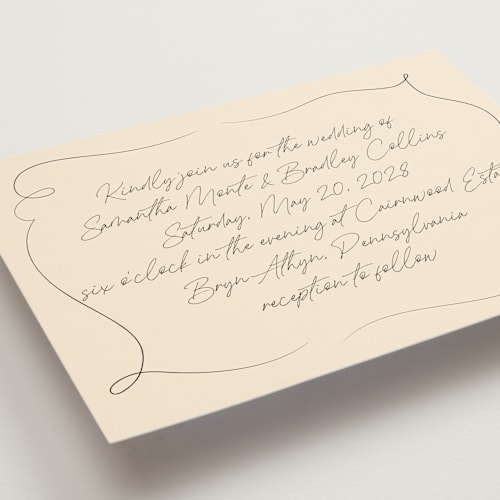 Kindly join us for the wedding of
Samantha Monte & Bradley Collins
Saturday, May 20, 2028
six o'clock in the evening at Cairnwood Esta
Bryn Athyn, Pennsylvania
reception to follow